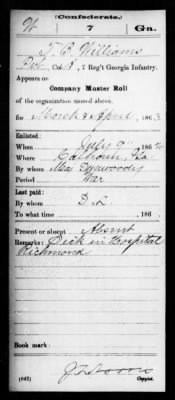 (Confederate.)
W 7 Ga.
T. P. Williams
Pvt, Co. K, 7 Reg't Georgia Infantry.
Appears on
Company Muster Roll
of the organization named above,
for March & April, 1863.
Enlisted:
When July 9, 1862
Where Calhoun, Ga
By whom Maj
Period War
Last paid:
By whom
To what time , 186 .
Present or absent Absent
Remarks: Sick in Hospital
Richmond
Book mark:
(642) Copyist.